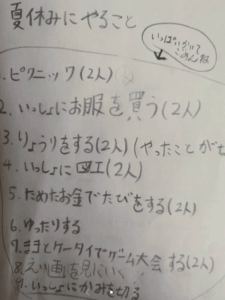 夏休みにやること
いっぱいかいて
ごめんね
1.ピクニック(2人)
2.いっしょにお服を買う(2人)
3.りょうりをする(2人)(やったことがで
4.いっしょに図工(2人)
5.ためたお金でたびをする(2人)
6.ゆったりする
7.ままとケータイでゲーム大会する(2人)
8.えい画を見にいく
9.いっしょにかみを切る